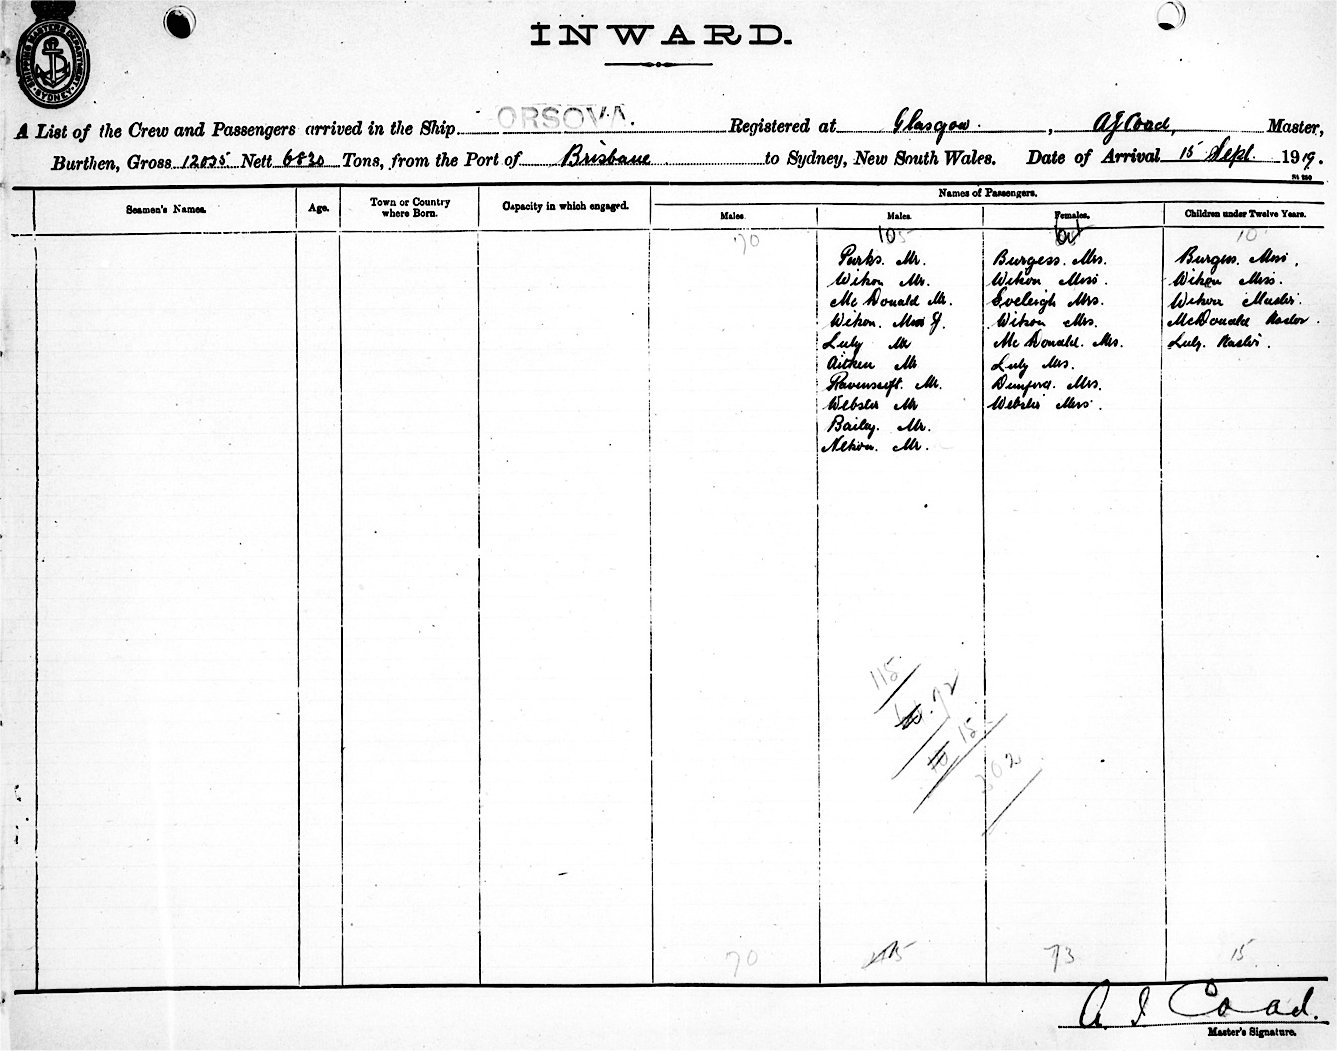 SHIPPING MASTERS DEPARTMENT
SYDNEY
INWARD.
A List of the Crew and Passengers arrived in the Ship ORSOVA. Registered at Glasgow. , A J Coad, Master,
Burthen, Gross 12025 Nett 6830 Tons, from the Port of Brisbane to Sydney, New South Wales. Date of Arrival 15 Sept. 1919.
Names of Passengers.
Seamen's Names. Age. Town or Country where Born. Capacity in which engaged. Males. Males. Females. Children under Twelve Years.
70 105 10
Parks. Mr. Burgess. Mrs. Burgess. Miss.
Wilson Mr. Wilson Miss. Wilson Miss.
McDonald Mr. Eveleigh Mrs. Wilson Master.
Wilson. Wilson Mrs. McDonald Master.
Luly Mr McDonald. Mrs. Luly. Master.
Aitken Mr Luly Mrs.
Ravenscroft. Mr. Dunford. Mrs.
Webster Mr Webster Miss.
Bailey. Mr.
Nelson. Mr.
115
72
15
202
70 115 73 15
A J Coad.
Master's Signature.